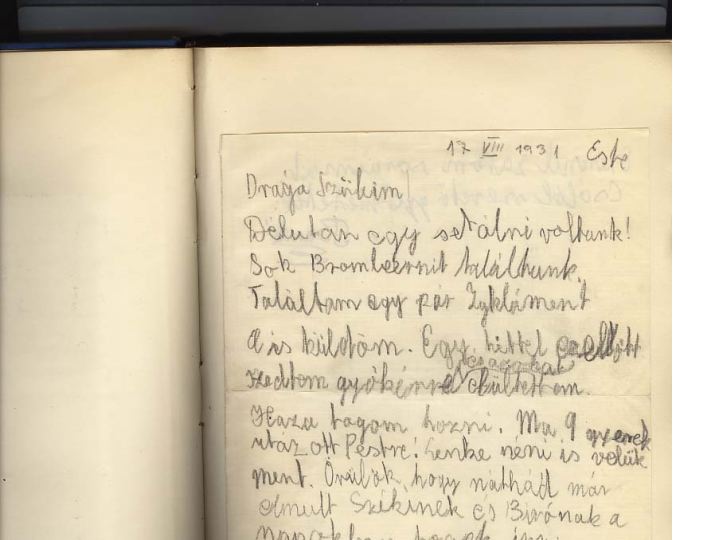 17 VIII 1931 Este
Drága Szükim!
Délután egy setálni voltunk!
Sok Brombeernit találtunk.
Találtam egy pár Zykláment
a is küldöm. Egy héttel ezellőtt
szedtem gyökérrel
Haza fogom hozni. Ma 9 gyerek
utaz ott Pestre! Lenke néni is velük
ment. Örülök, hogy náthád már
elmult Szükinek és Birónak a